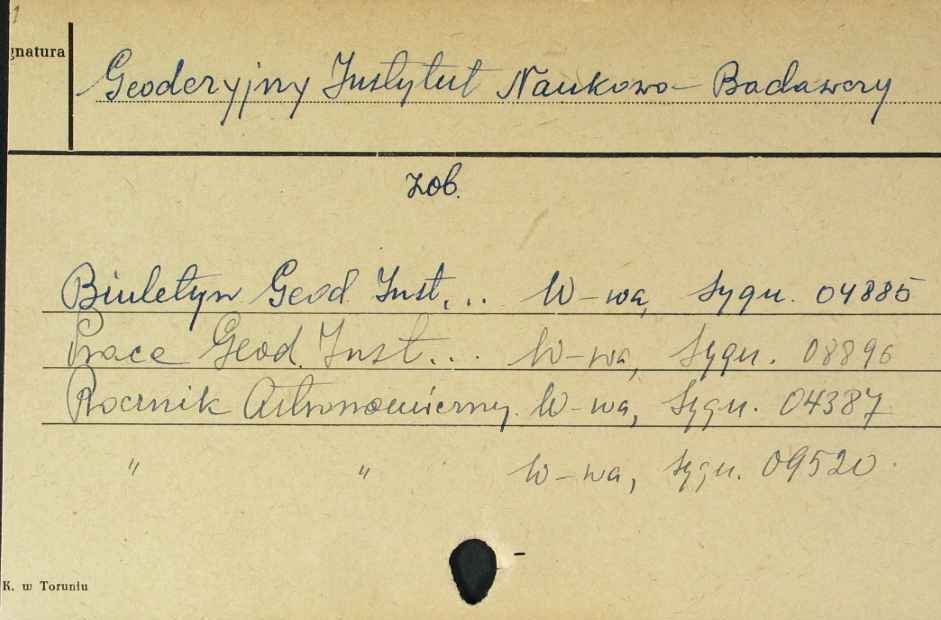 gnatura
Geodezyjny Instytut Naukowo-Badawczy
zob.
Biuletyn Geod. Inst... W-wa, Sygn. 04885
Prace Geod. Inst... W-wa, Sygn. 08896
Rocznik Astronomiczny. W-wa, Sygn. 04387
" " W-wa, Sygn. 09520.
K. w Toruniu